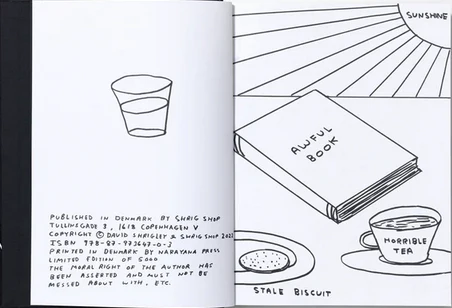 PUBLISHED IN DENMARK BY SHRIG SHOP
TULLINSGADE 3, 1618 COPENHAGEN V
COPYRIGHT © DAVID SHRIGLEY & SHRIG SHOP 2023
ISBN 978-87-973647-0-3
PRINTED IN DENMARK BY NARAYANA PRESS
LIMITED EDITION OF 5000
THE MORAL RIGHT OF THE AUTHOR HAS
BEEN ASSERTED AND MUST NOT BE
MESSED ABOUT WITH. ETC.
SUNSHINE
AWFUL
BOOK
HORRIBLE
TEA
STALE BISCUIT